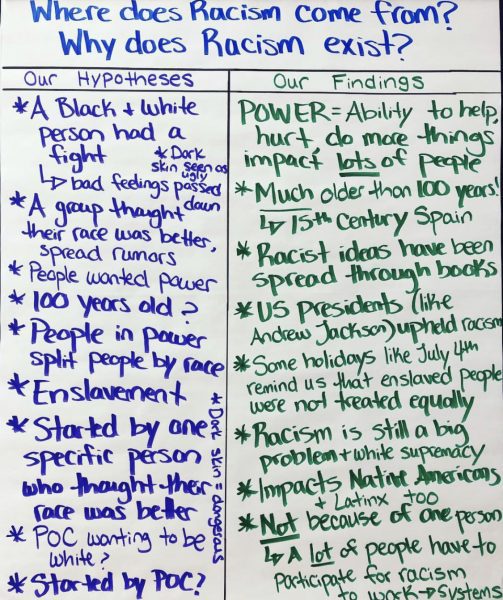 Where does Racism come from?
Why does Racism exist?
Our Hypotheses
* A Black + white
person had a
fight
↳ bad feelings passed
down
* Dark
skin seen as
ugly
* A group thought
their race was better,
spread rumors
* People wanted power
* 100 years old?
* People in power
split people by race
* Enslavement
* Started by one
specific person
who thought their
race was better
* Dark skin = dangerous
* POC wanting to be
white?
* Started by POC?
Our Findings
POWER = Ability to help,
hurt, do more things
impact lots of people
* Much older than 100 years!
↳ 15th Century Spain
* Racist ideas have been
spread through books
* US Presidents (like
Andrew Jackson) upheld racism
* Some holidays like July 4th
remind us that enslaved people
were not treated equally
* Racism is still a big
problem + white supremacy
* Impacts Native Americans
+ Latinx too
* Not because of one person
↳ A lot of people have to
participate for racism
to work → systems